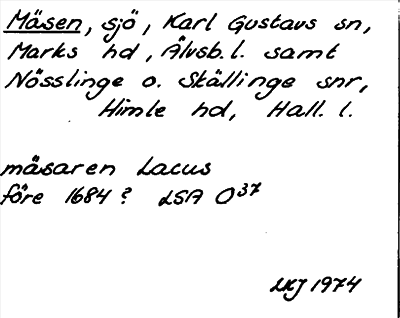 Mäsen, sjö, Karl Gustavs sn,
Marks hd, Älvsb. l. samt
Nösslinge o. Skällinge snr,
Himle hd, Hall. l.
mäsaren Lacus
före 1684? LSA O37
LKJ 1974